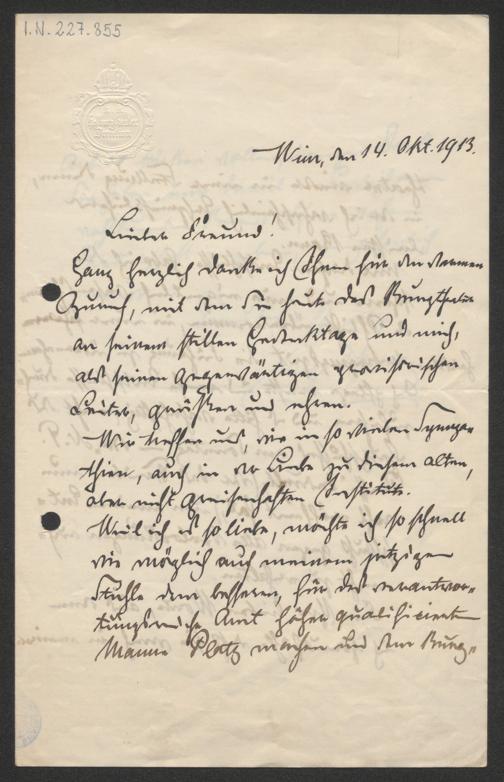 I.N. 227.855
Wien, den 14. Okt. 1913.
Lieber Freund!
Ganz herzlich danke ich Ihnen für den warmen
Zuruf, mit dem Sie heute das Burgtheater
an seinem stillen Gedenktage und mich,
als seinen gegenwärtigen provisorischen
Leiter, grüßten und ehren.
Wir treffen uns, wie in so vielen Sympa-
thien, auch in der Liebe zu diesem alten,
aber nicht greisenhaften Institute.
Weil ich es so liebe, möchte ich so schnell
wie möglich auf meinem jetzigen
Stuhle dem besseren, für das verantwor-
tungsreiche Amt höher qualificierten
Manne Platz machen und dem Burg-